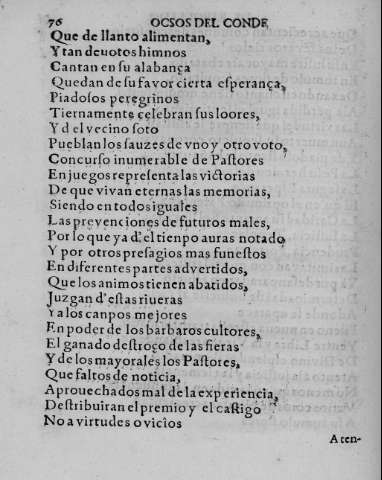 76 OCSOS DEL CONDE
Que de llanto alimentan,
Y tan deuotos himnos
Cantan en su alabança
Quedan de su fauor cierta esperança,
Piadosos peregrinos
Tiernamente celebran sus loores,
Y d el vecino soto
Pueblan los sauzes de vno y otro voto,
Concurso inumerable de Pastores
En juegos representa las victorias
De que vivan eternas las memorias,
Siendo en todos iguales
Las prevenciones de futuros males,
Por lo que ya d'el tienpo auras notado
Y por otros presagios mas funestos
En diferentes partes advertidos,
Que los animos tienen abatidos,
Juzgan d'estas riueras
Y a los canpos mejores
En poder de los barbaros cultores,
El ganado destroço de las fieras
Y de los mayorales los Pastores,
Que faltos de noticia,
Aprouechados mal de la experiencia,
Destribuiran el premio y el castigo
No a virtudes o vicios
A ten-